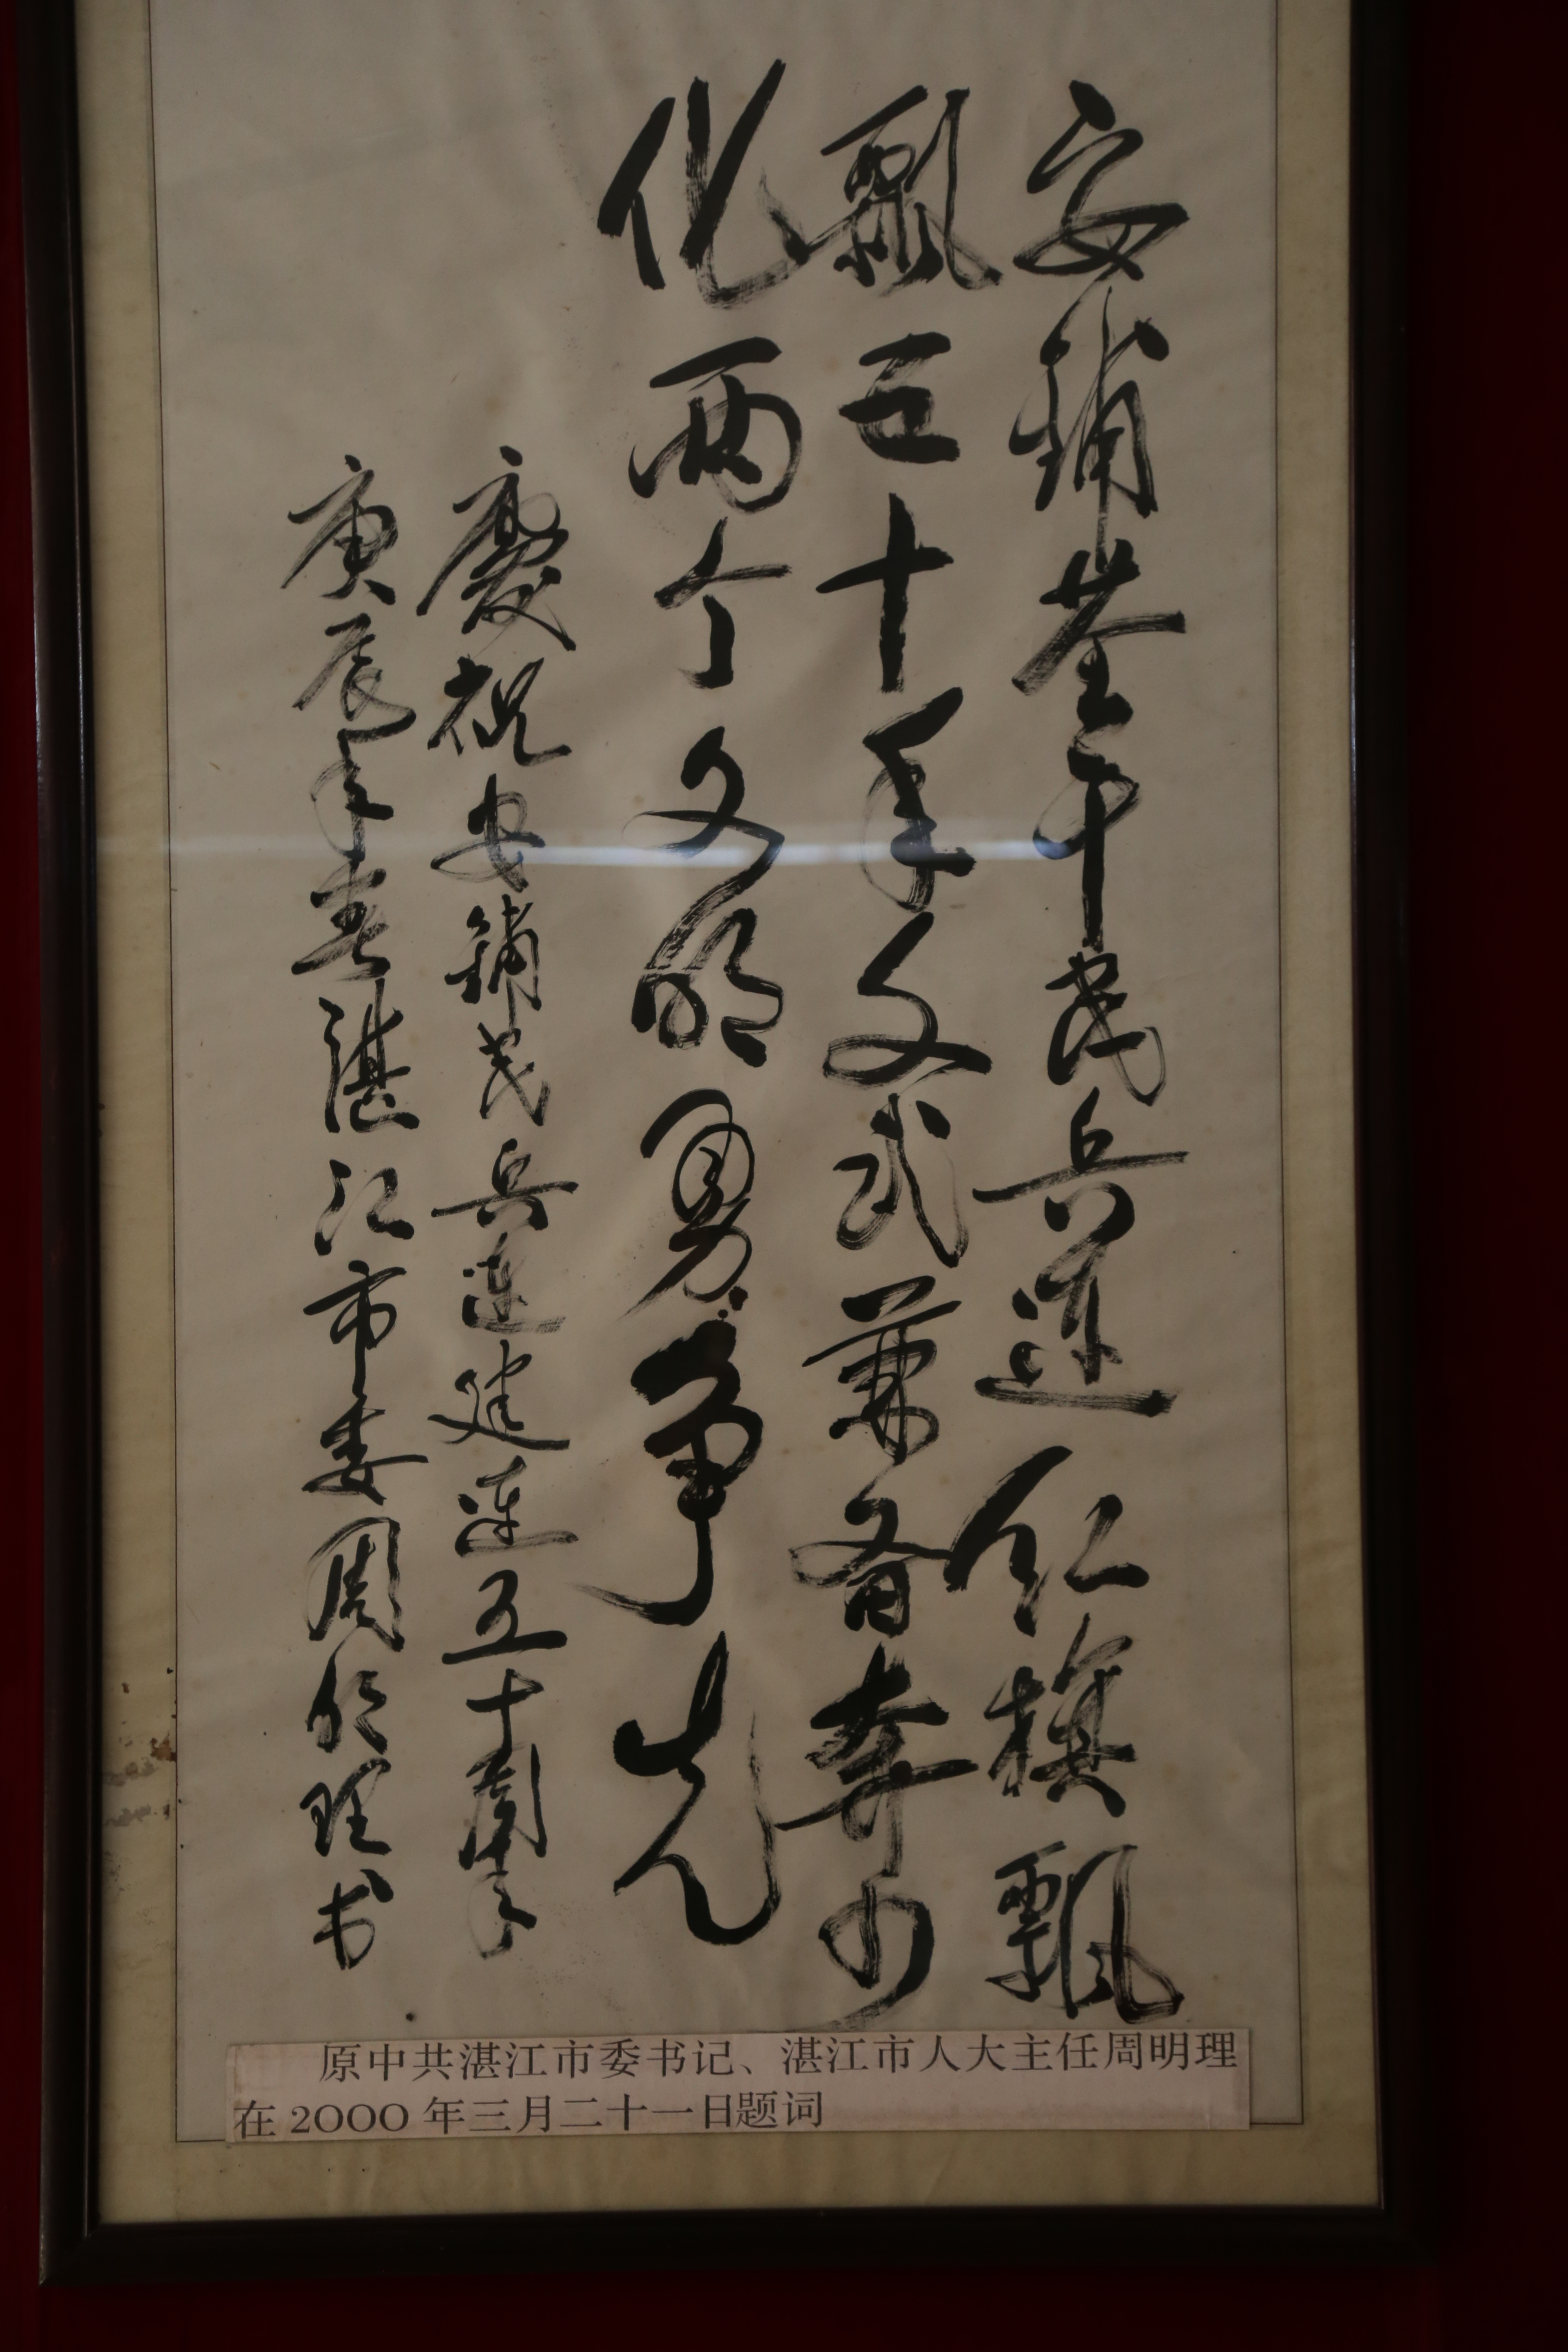 安铺基干民兵连红旗飘
飘五十年文武兼备奔四
化两个文明勇争先
慶祝安铺民兵连建连五十周年
庚辰年春湛江市委周明理书
原中共湛江市委书记、湛江市人大主任周明理
在2000年三月二十一日题词